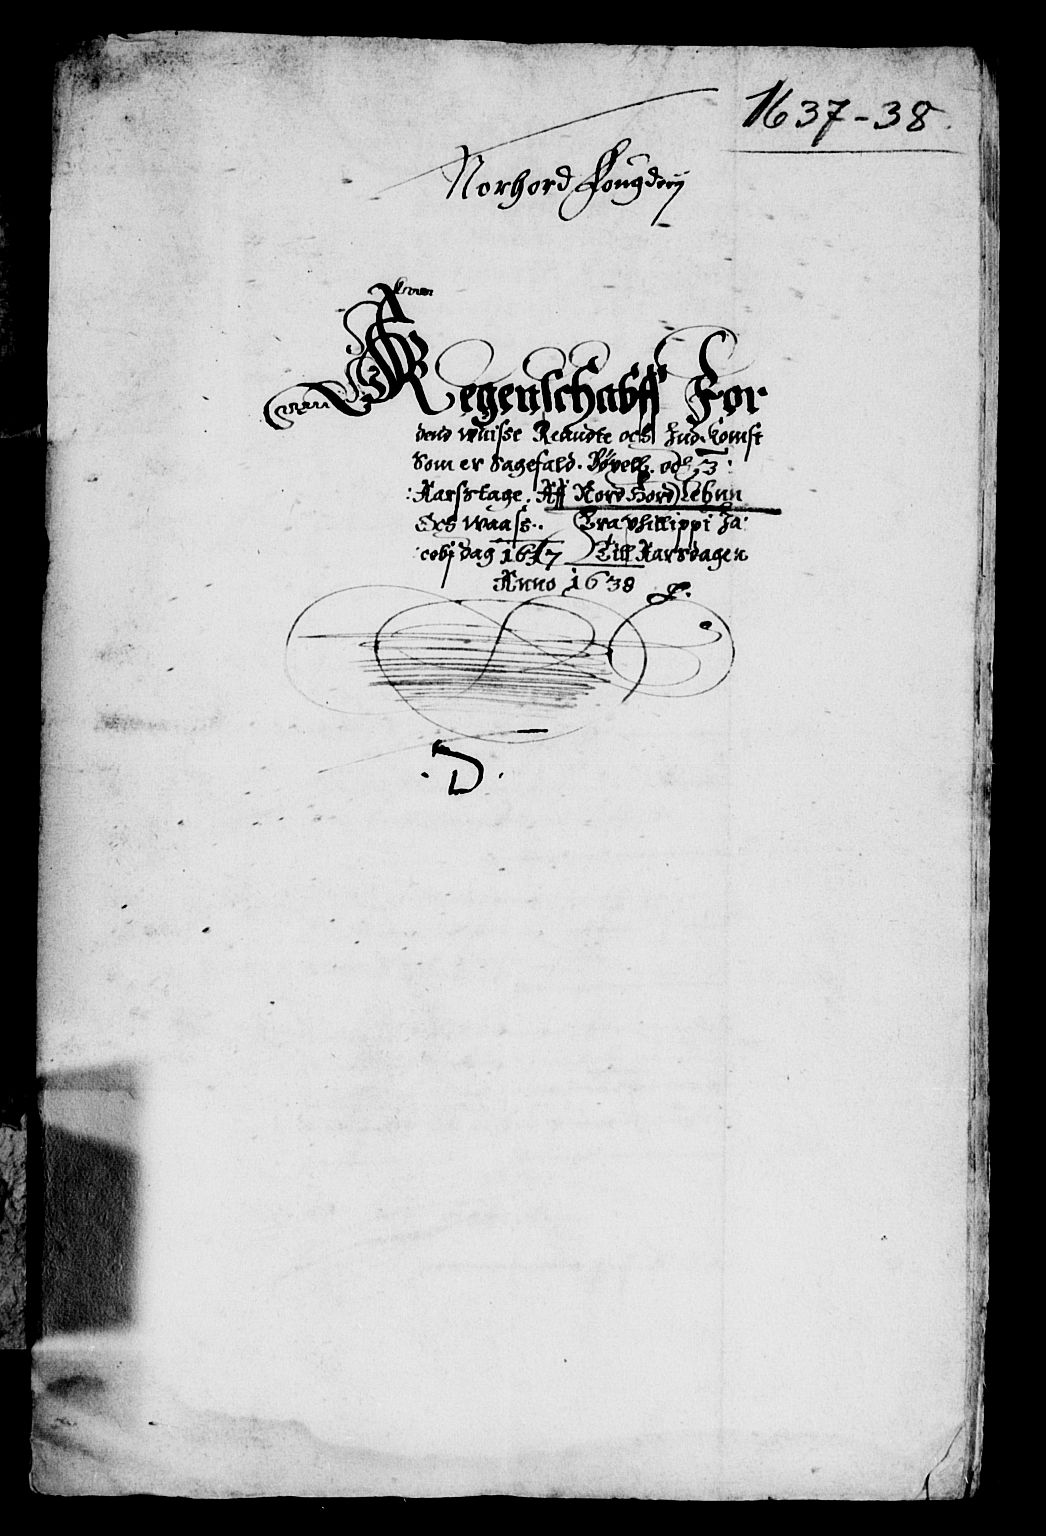 1637-38.
Norhord Fougderij
Regenschabff For
dend wuisse Reandte och Ind.Komst
Som er Sagefald. Bøxell. och 3:
:Aarsstage. Aff Nord Hord Lehnn
Och Waass.. Fra Phillippi Ja:
:cobj dag 1637 Till Aarsdagen
Anno 1638
.D.